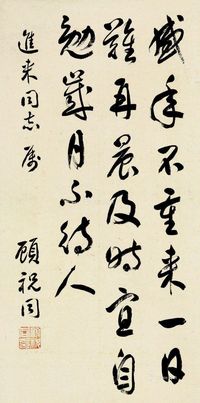 盛年不重来一日
難再晨及时宜自
勉歲月不待人
進来同志属
顧祝同